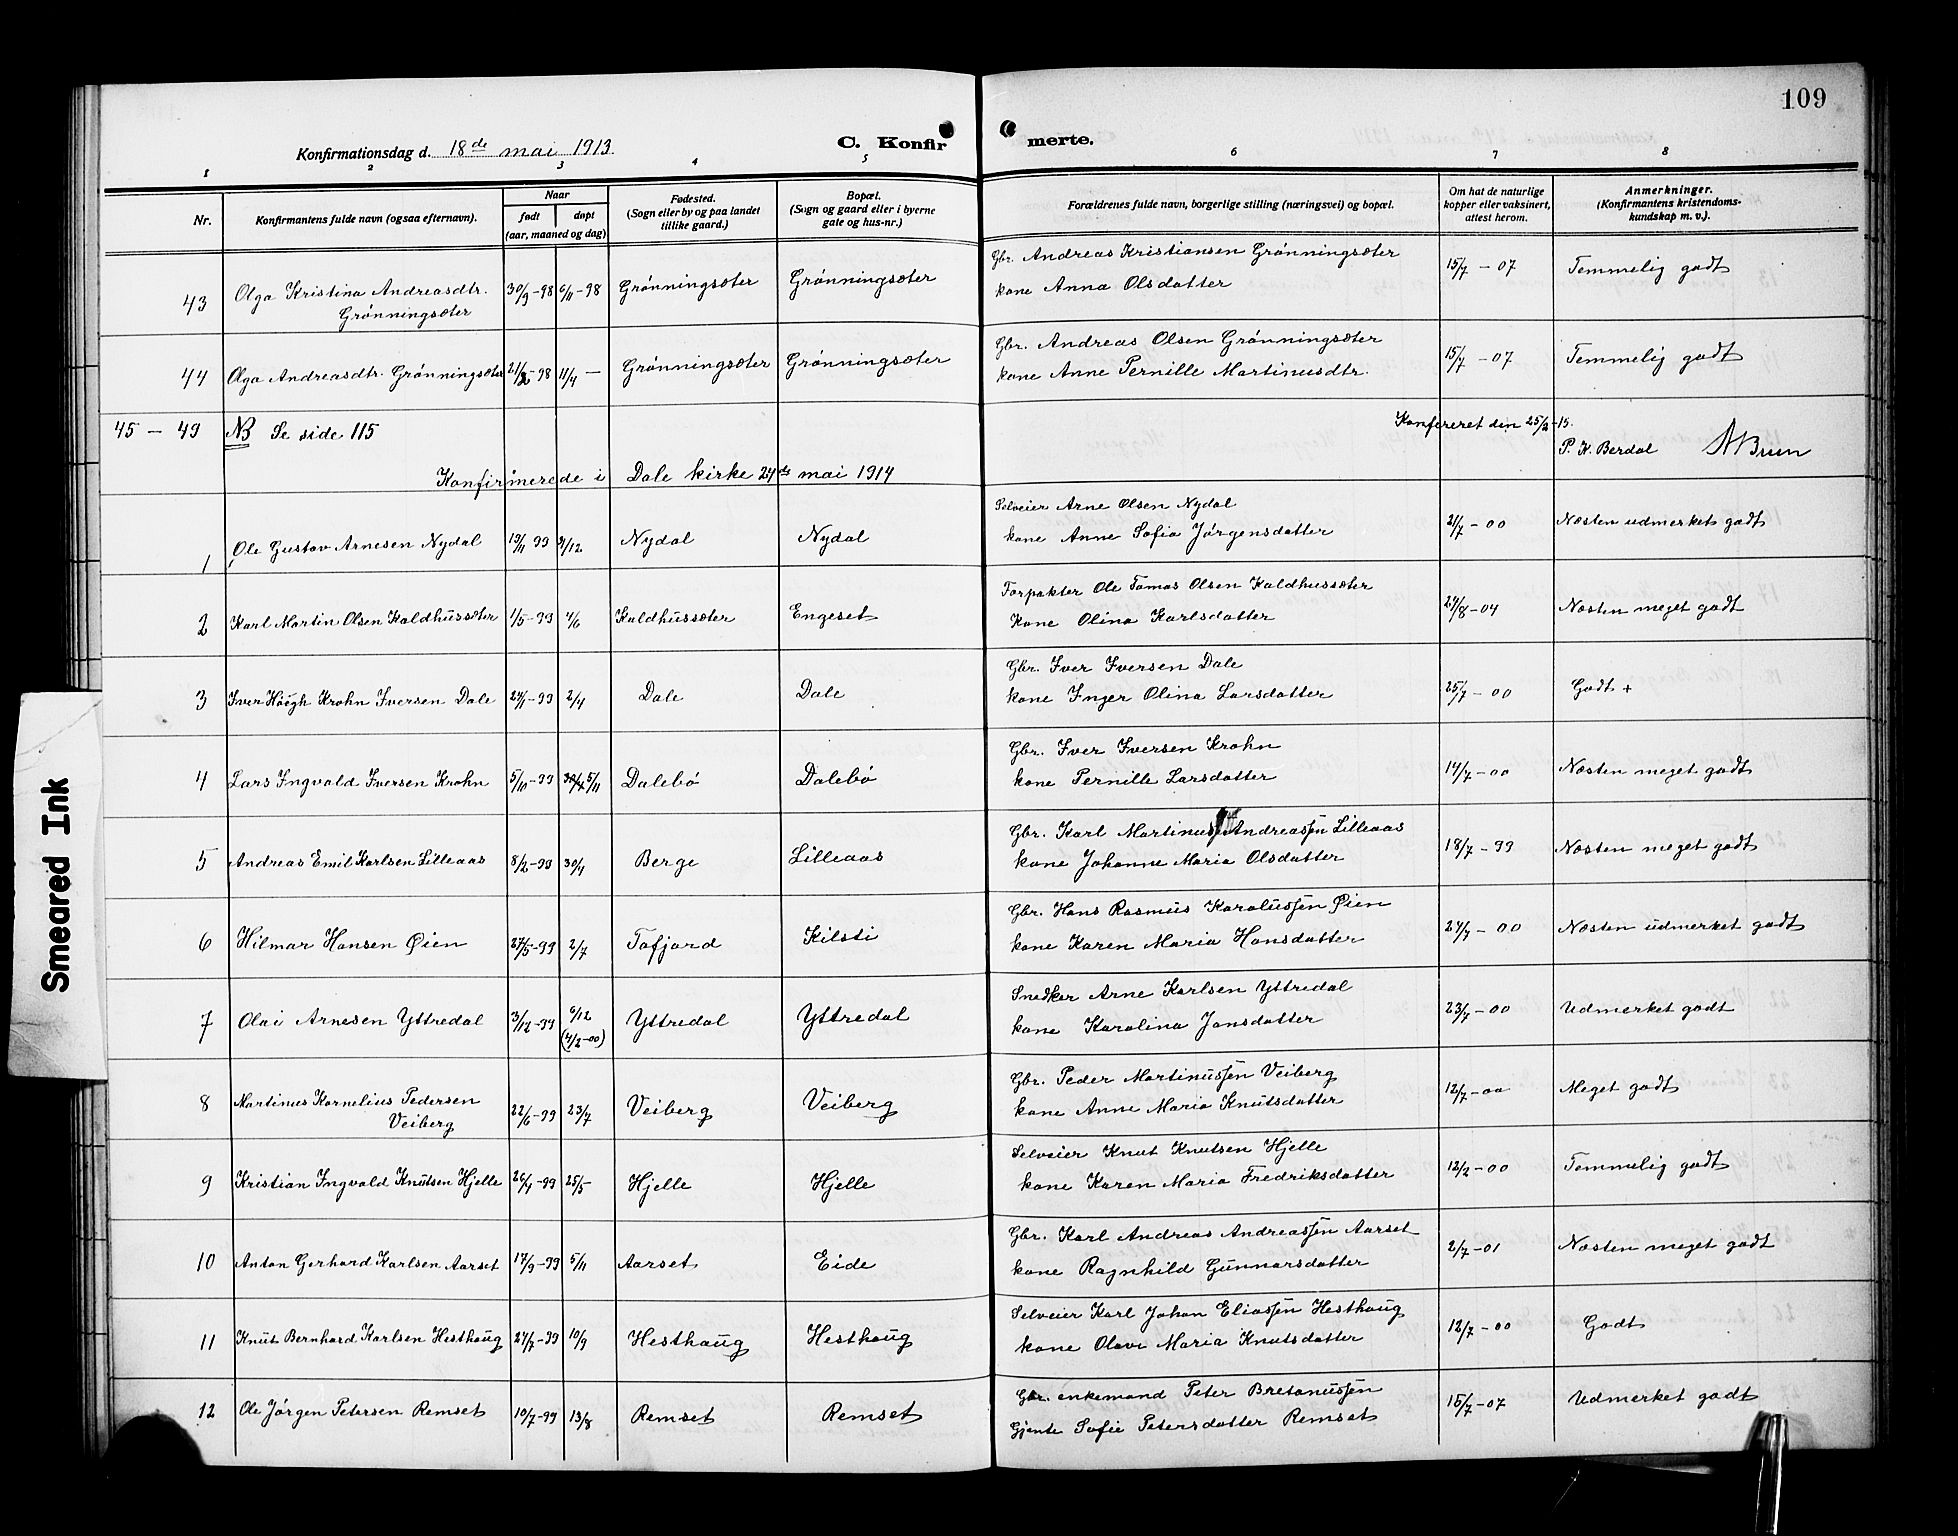 109
Konfirmationsdag d. 18de mai 1913. C. Konfirmerte.
1 2 3 4 5 6 7 8
Nr. Konfirmantens fulde navn (ogsaa efternavn). Naar født døpt (aar, maaned og dag) Fødested. (Sogn eller by og paa landet tillike gaard.) Bopæl. (Sogn og gaard eller i byerne gate og hus-nr.) Forældrenes fulde navn, borgerlige stilling (næringsvei) og bopæl. Om hat de naturlige kopper eller vaksinert, attest herom. Anmerkninger. (Konfirmantens kristendomskundskap m. v.).
43 Olga Kristina Andreasdtr. Grønningsæter 30/9-98 6/11-98 Grønningsæter Grønningsæter Gbr. Andreas Kristiansen Grønningsæter
kone Anna Olsdatter 15/7-07 Temmelig godt
44 Olga Andreasdtr. Grønningsæter 21/2-98 11/4 — Grønningsæter Grønningsæter Gbr. Andreas Olsen Grønningsæter
kone Anne Pernille Martinusdtr. 15/7-07 Temmelig godt
45 — 49 NB Se side 115 Konfereret den 25/2-15.
P. K. Berdal ABruun
Konfirmerede i Dale kirke 24de mai 1914
1 Ole Gustav Arnesen Nydal 19/11 99 31/12 Nydal Nydal Selveier Arne Olsen Nydal
kone Anne Sofia Jørgensdatter 21/7-00 Næsten udmerket godt
2 Karl Martin Olsen Kaldhussæter 1/5-99 4/6 Kaldhussæter Engeset Forpakter Ole Tomas Olsen Kaldhussæter
Kone Olina Karlsdatter 24/8-04 Næsten meget godt
3 Iver Høegh Krohn Iversen Dale 24/1-99 2/4 Dale Dale Gbr. Iver Iversen Dale
kone Inger Olina Larsdatter 25/7-00 Godt +
4 Lars Ingvald Iversen Krohn 5/10-99 5/11 Dalebø Dalebø Gbr. Iver Iversen Krohn
kone Pernille Larsdatter 14/7-00 Næsten meget godt
5 Andreas Emil Karlsen Lilleaas 8/2-99 30/4 Berge Lilleaas Gbr. Karl Martinus Andreassen Lilleaas
kone Johanne Maria Olsdatter 18/7-99 Næsten meget godt
6 Hilmar Hansen Øien 27/5-99 2/7 Tafjord Kilsti Gbr. Hans Rasmus Karolussen Øien
kone Karen Maria Hansdatter 24/7-00 Næsten udmerket godt
7 Olai Arnesen Yttredal 3/12-99 6/12 (4/2-00) Yttredal Yttredal Snedker Arne Karlsen Yttredal
kone Karolina Jonsdatter 23/7-00 Udmerket godt
8 Martinus Kornelius Pedersen Veiberg 22/6-99 23/7 Veiberg Veiberg Gbr. Peder Martinussen Veiberg
kone Anne Maria Knutsdatter 12/7-00 Meget godt
9 Kristian Ingvald Knutsen Hjelle 26/4-99 25/5 Hjelle Hjelle Selveier Knut Knutsen Hjelle
kone Karen Maria Fredriksdatter 12/2-00 Temmelig godt
10 Anton Gerhard Karlsen Aarset 17/9-99 5/11 Aarset Eide Gbr. Karl Andreas Andreassen Aarset
kone Ragnhild Gunnarsdatter 2/7-01 Næsten meget godt
11 Knut Bernhard Karlsen Hesthaug 27/7-99 10/9 Hesthaug Hesthaug Selveier Karl Johan Eliassen Hesthaug
kone Olave Maria Knutsdatter 12/7-00 Godt
12 Ole Jørgen Petersen Remset 10/7-99 13/8 Remset Remset Gbr. enkemand Peter Bretanussen
Gjente Sofie Petersdatter Remset 15/7-07 Udmerket godt
Smeared Ink